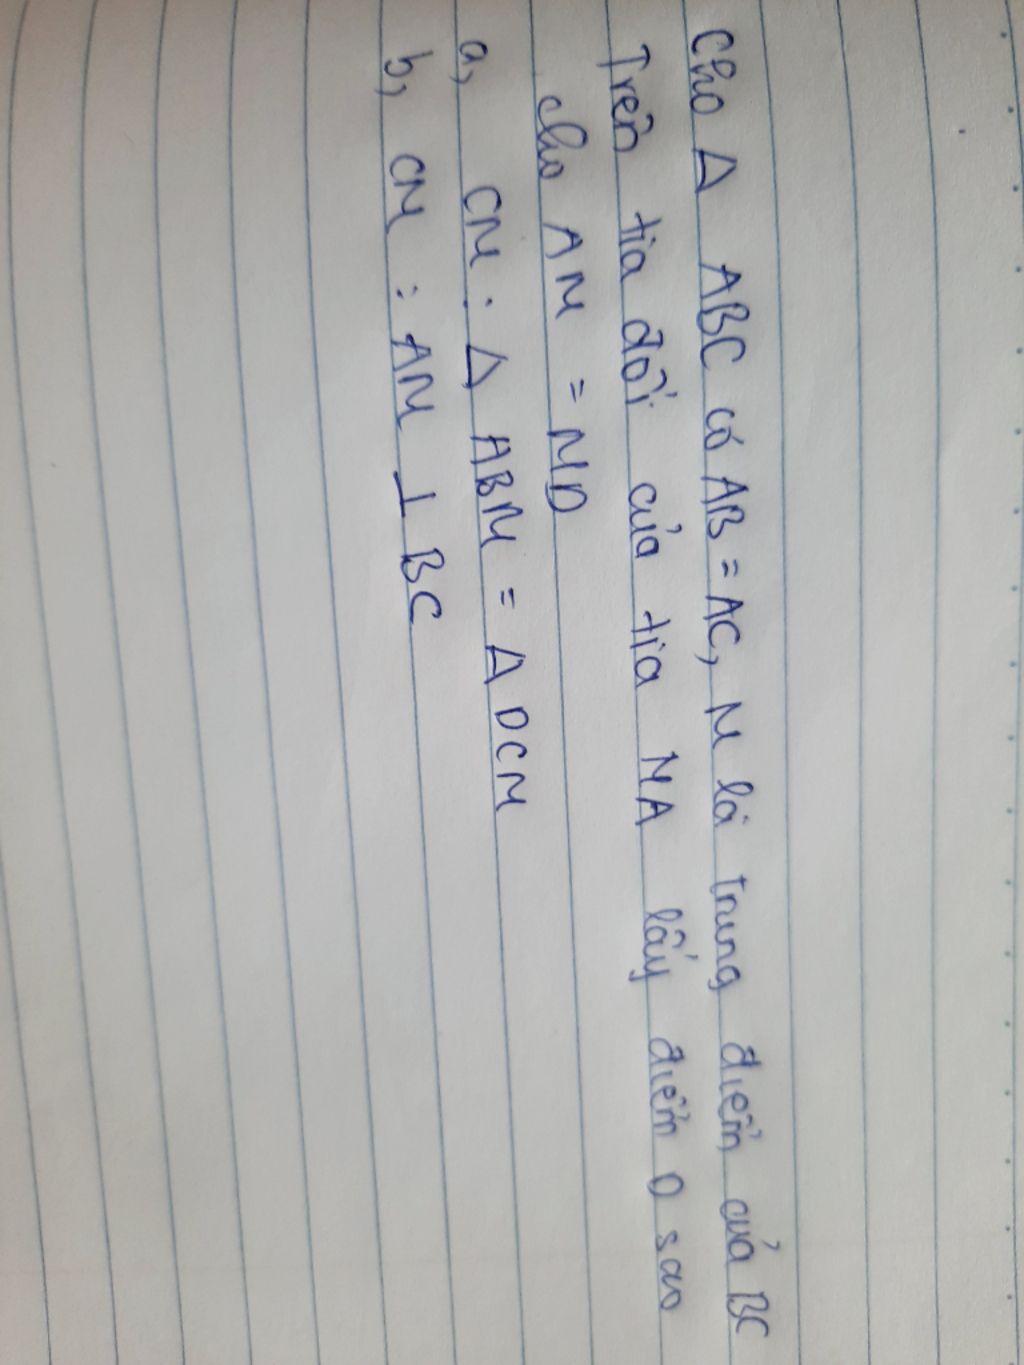 Cho Δ ABC có AB = AC, M là trung điểm của BC
Trên tia đối của tia MA lấy điểm D sao
cho AM = MD
a, CM : Δ ABM = Δ DCM
b, CM : AM ⊥ BC